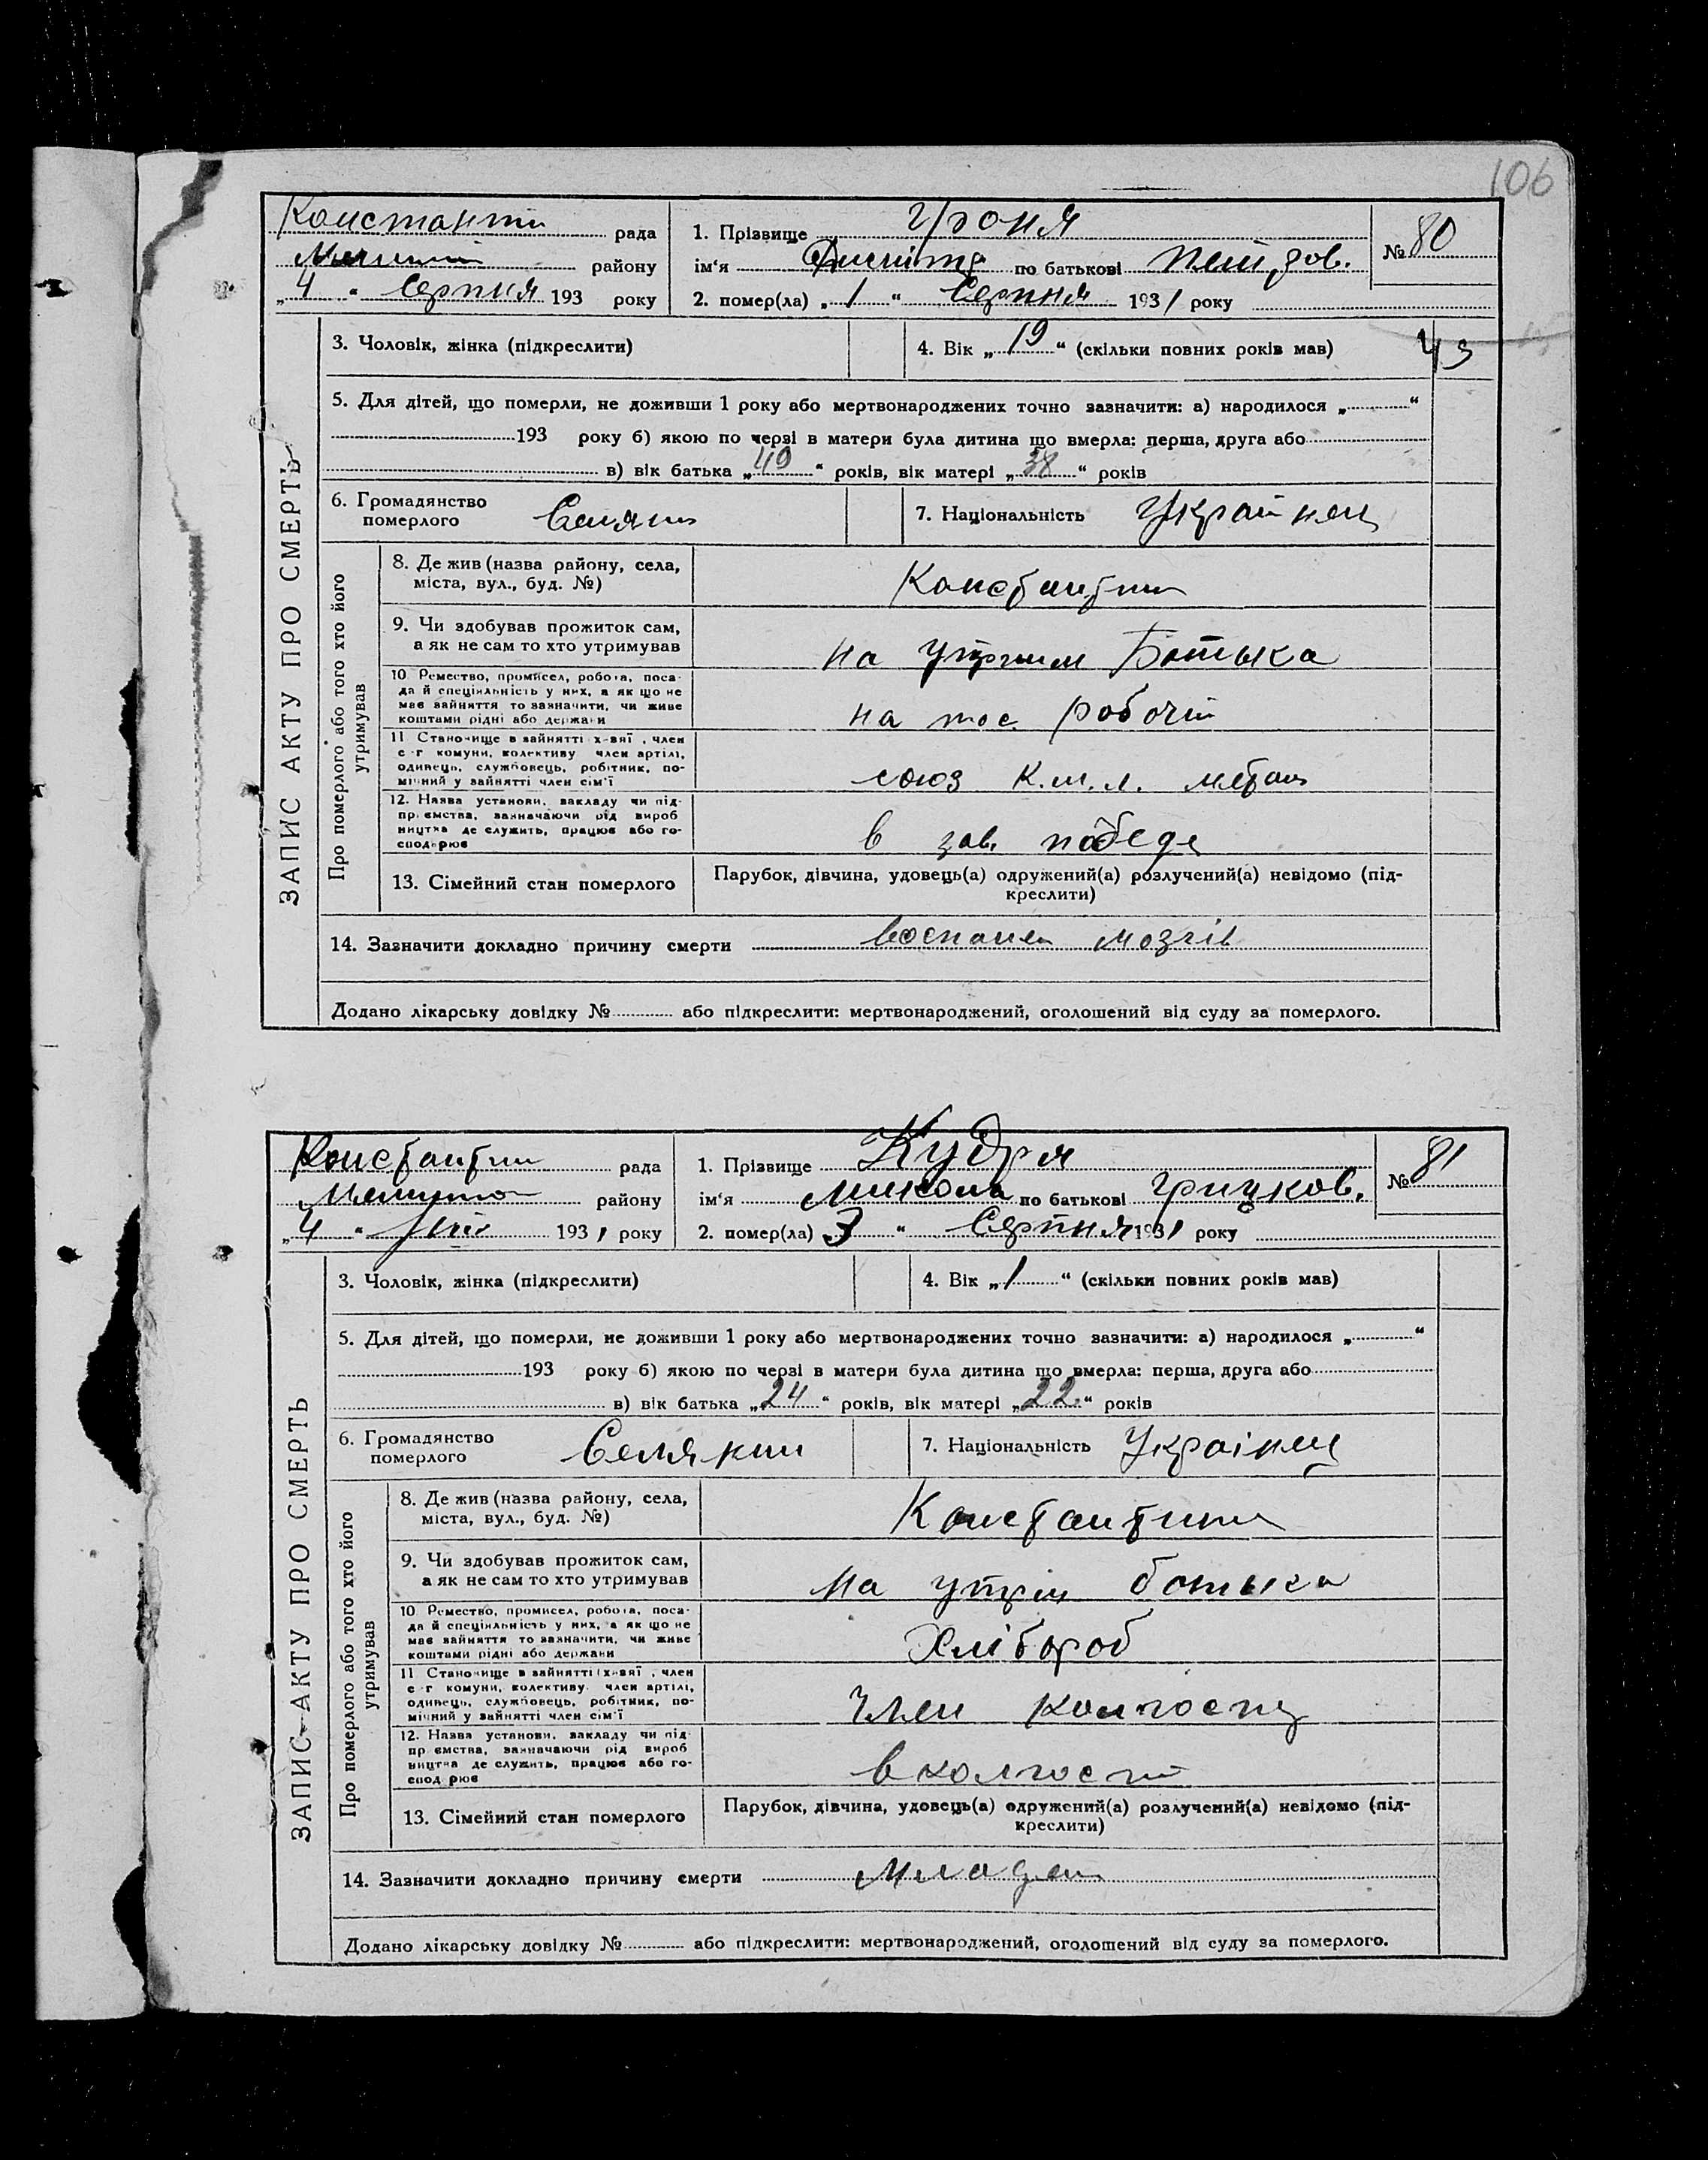 106
Константи рада
району
„4“ Серпня 193 року
1. Прізвище Гроня
ім'я Дмитро по батькові
2. помер(ла) „1“ Серпня 1931 року
№ 80
ЗАПИС АКТУ ПРО СМЕРТЬ
3. Чоловік, жінка (підкреслити)
4. Вік „19“ (скільки повних років мав)
43
5. Для дітей, що померли, не доживши 1 року або мертвонароджених точно зазначити: а) народилося „ “
193 року б) якою по черзі в матери була дитина що вмерла: перша, друга або
в) вік батька „49“ років, вік матері „38“ років
6. Громадянство
померлого
7. Національність Украйнец
Про померлого або того хто його
утримував
8. Де жив (назва району, села,
міста, вул., буд. №)
Константин
9. Чи здобував прожиток сам,
а як не сам то хто утримував
на утрим Батька
10 Ремество, промисел, робота, поса-
да й спеціяльність у них, а як що не
має зайняття то зазначити, чи живе
коштами рідні або держави
на робочій
11 Становище в зайнятті х-вяї, член
с-г комуни, колективу член артілі,
одинець, службовець, робітник, по-
мічний у зайнятті член сім'ї
союз
12. Назва установи, закладу чи під-
приємства, зазначаючи рід вироб
ництва де служить, працює або го-
сподарює
в зав. победе
13. Сімейний стан померлого
Парубок, дівчина, удовець(а) одружений(а) розлучений(а) невідомо (під-
креслити)
14. Зазначити докладно причину смерти воспален мозгів
Додано лікарську довідку № або підкреслити: мертвонароджений, оголошений від суду за померлого.
Константин рада
району
„4“ 1931 року
1. Прізвище Кудря
ім'я Микола по батькові Грицков.
2. помер(ла) 3 “ Серпня 1931 року
№ 81
ЗАПИС АКТУ ПРО СМЕРТЬ
3. Чоловік, жінка (підкреслити)
4. Вік „1“ (скільки повних років мав)
5. Для дітей, що померли, не доживши 1 року або мертвонароджених точно зазначити: а) народилося „ “
193 року б) якою по черзі в матери була дитина що вмерла: перша, друга або
в) вік батька „24“ років, вік матері „22“ років
6. Громадянство
померлого
Селянин
7. Національність Українец
Про померлого або того хто його
утримував
8. Де жив (назва району, села,
міста, вул., буд. №)
Константин
9. Чи здобував прожиток сам,
а як не сам то хто утримував
на утрим батька
10 Ремество, промисел, робота, поса-
да й спеціяльність у них, а як що не
має зайняття то зазначити, чи живе
коштами рідні або держави
Хлібороб
11 Становище в зайнятті х-вяї, член
с-г комуни, колективу член артілі,
одинець, службовець, робітник, по-
мічний у зайнятті член сім'ї
член колгоспу
12. Назва установи, закладу чи під-
приємства, зазначаючи рід вироб
ництва де служить, працює або го-
сподарює
в колгоспі
13. Сімейний стан померлого
Парубок, дівчина, удовець(а) одружений(а) розлучений(а) невідомо (під-
креслити)
14. Зазначити докладно причину смерти Младен
Додано лікарську довідку № або підкреслити: мертвонароджений, оголошений від суду за померлого.